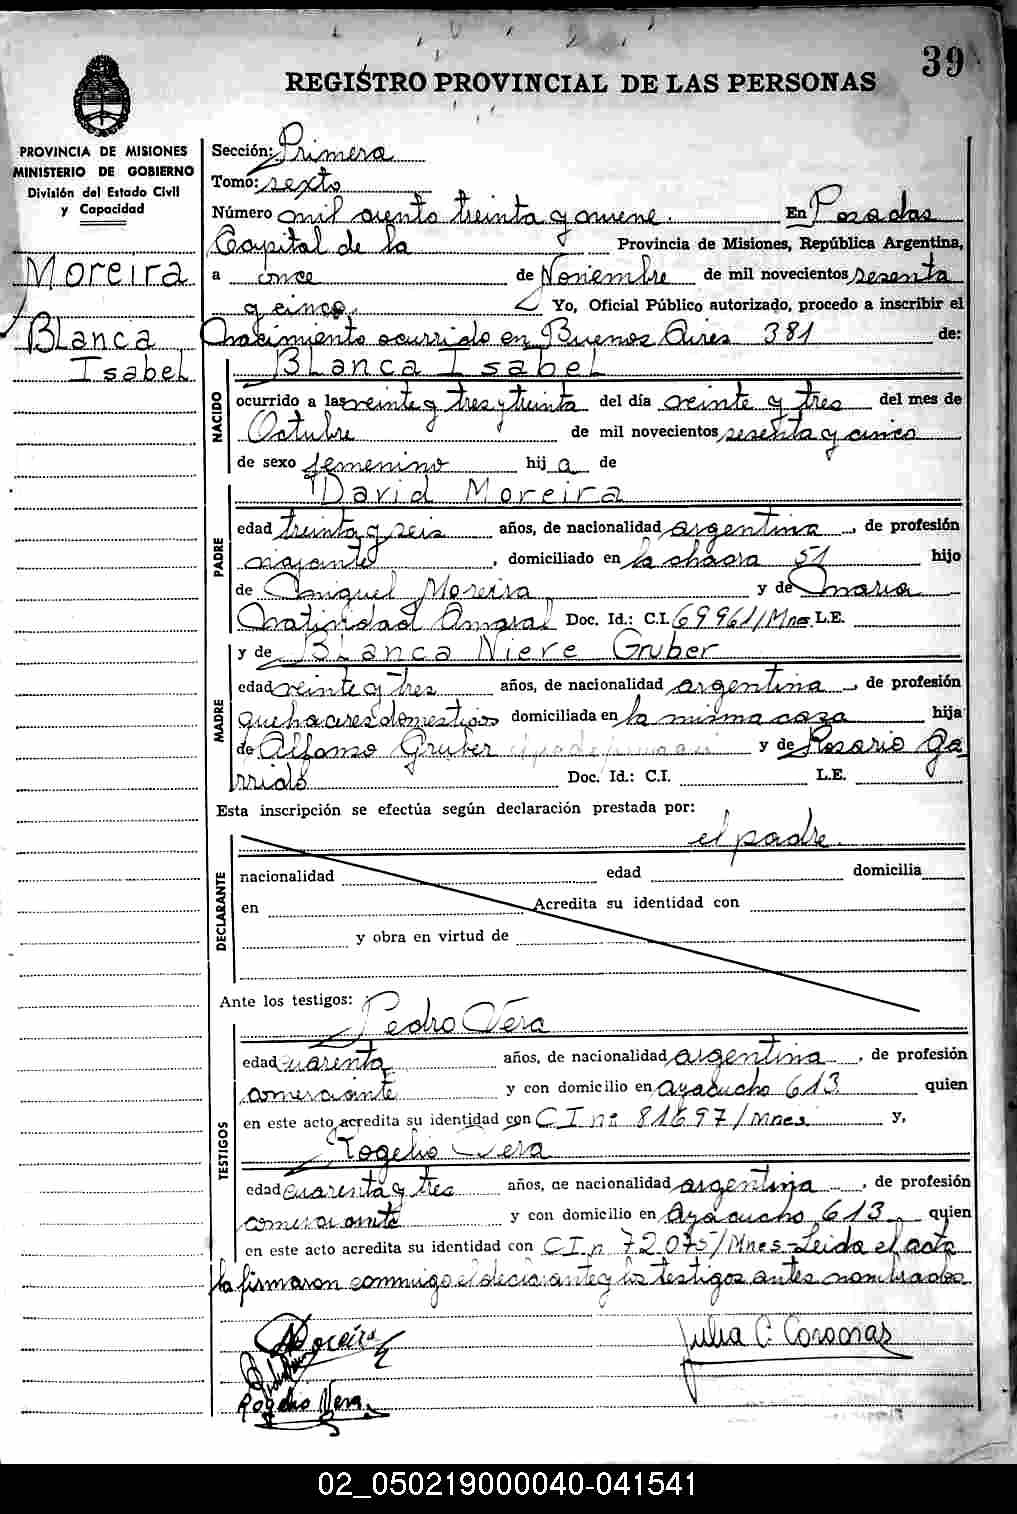 39
REGISTRO PROVINCIAL DE LAS PERSONAS
PROVINCIA DE MISIONES
MINISTERIO DE GOBIERNO
División del Estado Civil
y Capacidad
Moreira
Blanca
Isabel
Sección: Primera
Tomo: sexto
Número mil ciento treinta y nueve. En Posadas
Capital de la Provincia de Misiones, República Argentina,
a once de Noviembre de mil novecientos sesenta
y cinco. Yo, Oficial Público autorizado, procedo a inscribir el
Nacimiento ocurrido en Buenos Aires 381 de:
NACIDO
Blanca Isabel
ocurrido a las veinte y tres y treinta del día veinte y tres del mes de
Octubre de mil novecientos sesenta y cinco
de sexo femenino hij a de
PADRE
David Moreira
edad treinta y seis años, de nacionalidad argentina, de profesión
viajante, domiciliado en la chacra 51 hijo
de Miguel Moreira y de Maria
Natividad Amaral Doc. Id.: C.I. 69961/Mnes L.E.
y de Blanca Nieve Gruber
MADRE
edad veinte y tres años, de nacionalidad argentina, de profesión
quehaceres domesticos domiciliada en la misma casa hija
de Alfonso Gruber y de Rosario Ga
rrido Doc. Id.: C.I. L.E.
Esta inscripción se efectúa según declaración prestada por:
el padre.
DECLARANTE
nacionalidad edad domicilia
en Acredita su identidad con
y obra en virtud de
Ante los testigos:
TESTIGOS
Pedro Vera
edad cuarenta años, de nacionalidad argentina, de profesión
comerciante y con domicilio en Ayacucho 613 quien
en este acto acredita su identidad con C I nº 81697/Mnes y,
Rogelio Vera
edad cuarenta y tres años, de nacionalidad argentina, de profesión
comerciante y con domicilio en Ayacucho 613. quien
en este acto acredita su identidad con C I n 72075/Mnes-Leida el acta
la firmaron conmigo el declarante y los testigos antes nombrados
Moreira
Julia C. Coronas
Rogelio Vera
02_050219000040-041541